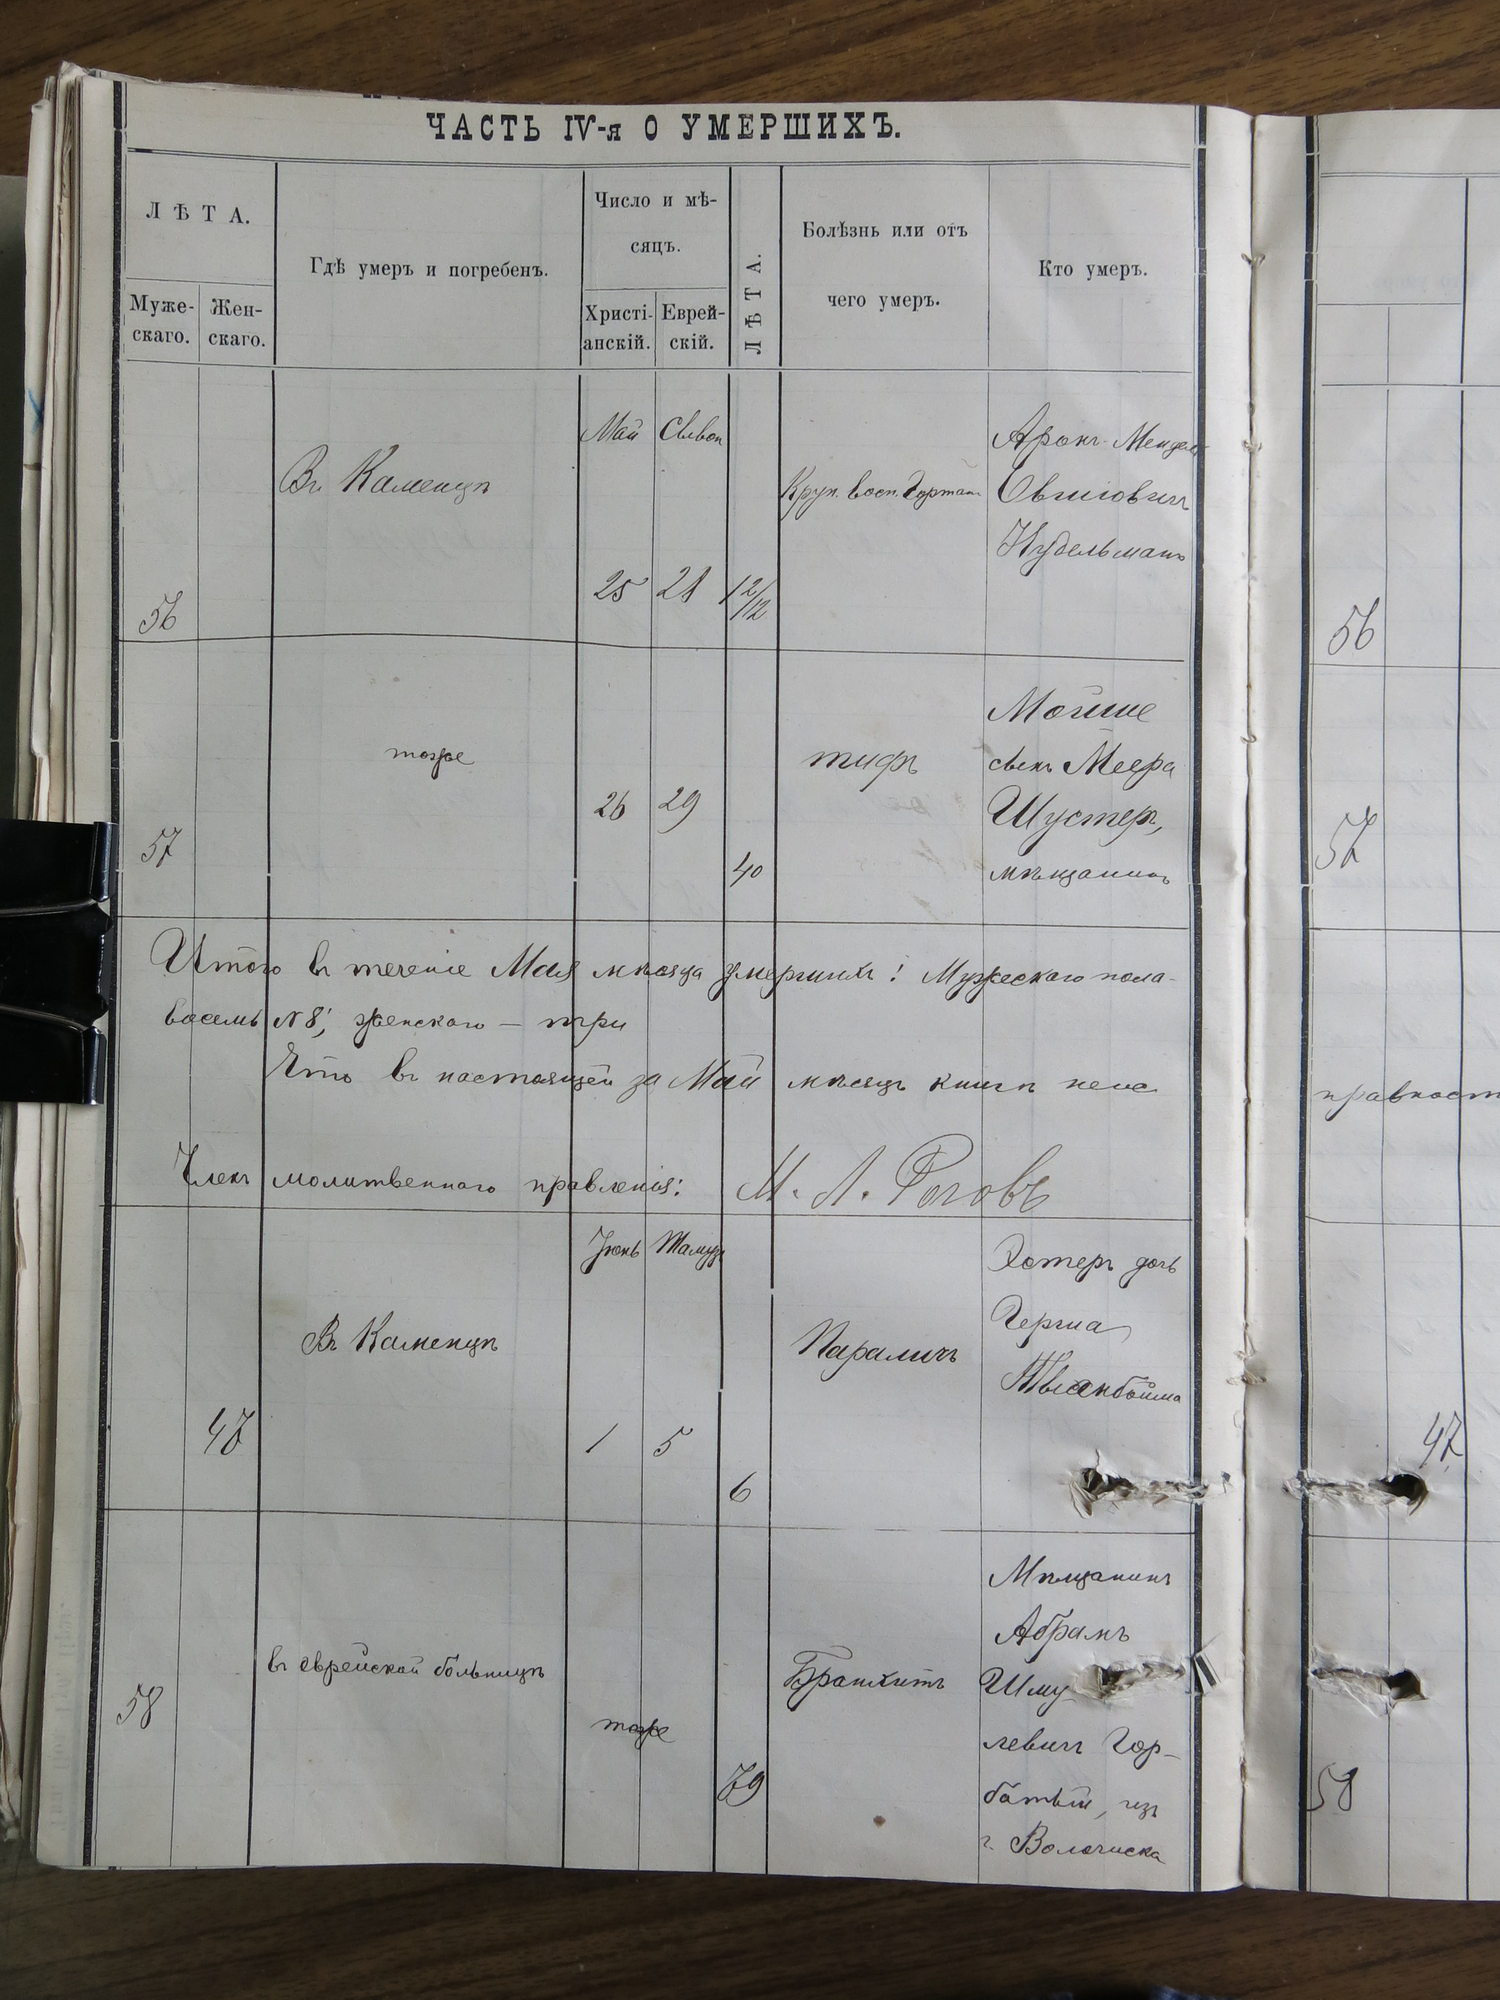 ЧАСТЬ IV-я О УМЕРШИХЪ.
ЛѢТА.
Муже-
скаго.
Жен-
скаго.
Гдѣ умеръ и погребенъ.
Число и мѣ-
сяцъ.
Христі-
анскій.
Еврей-
скій.
ЛѢТА.
Болѣзнь или отъ
чего умеръ.
Кто умеръ.
56
Въ Каменцѣ
Май
25
Сивон
28
1 2/12
Круп. восп. гортани
Аронъ-Мендель
Овшіовичъ
Нудельманъ
56
57
тоже
26
29
40
тифъ
Мойше
сынъ Меера
Шустеръ,
мѣщанинъ
57
Итого въ теченіе Мая мѣсяца умершихъ: Мужескаго пола-
восемь №8; женскаго - три
Что въ настоящей за Май мѣсяцъ книгѣ неис
правност
Членъ молитвеннаго правленія: М. Л. Роговъ
47
Въ Каменцѣ
Іюнь
1
Тамузъ
5
6
Параличъ
Эстеръ дочь
Герша
47
58
въ еврейской больницѣ
тоже
79
Бронхитъ
Мѣщанинъ
Абрамъ
Шму-
левичъ Гор-
батый, изъ
г. Волочиска
58